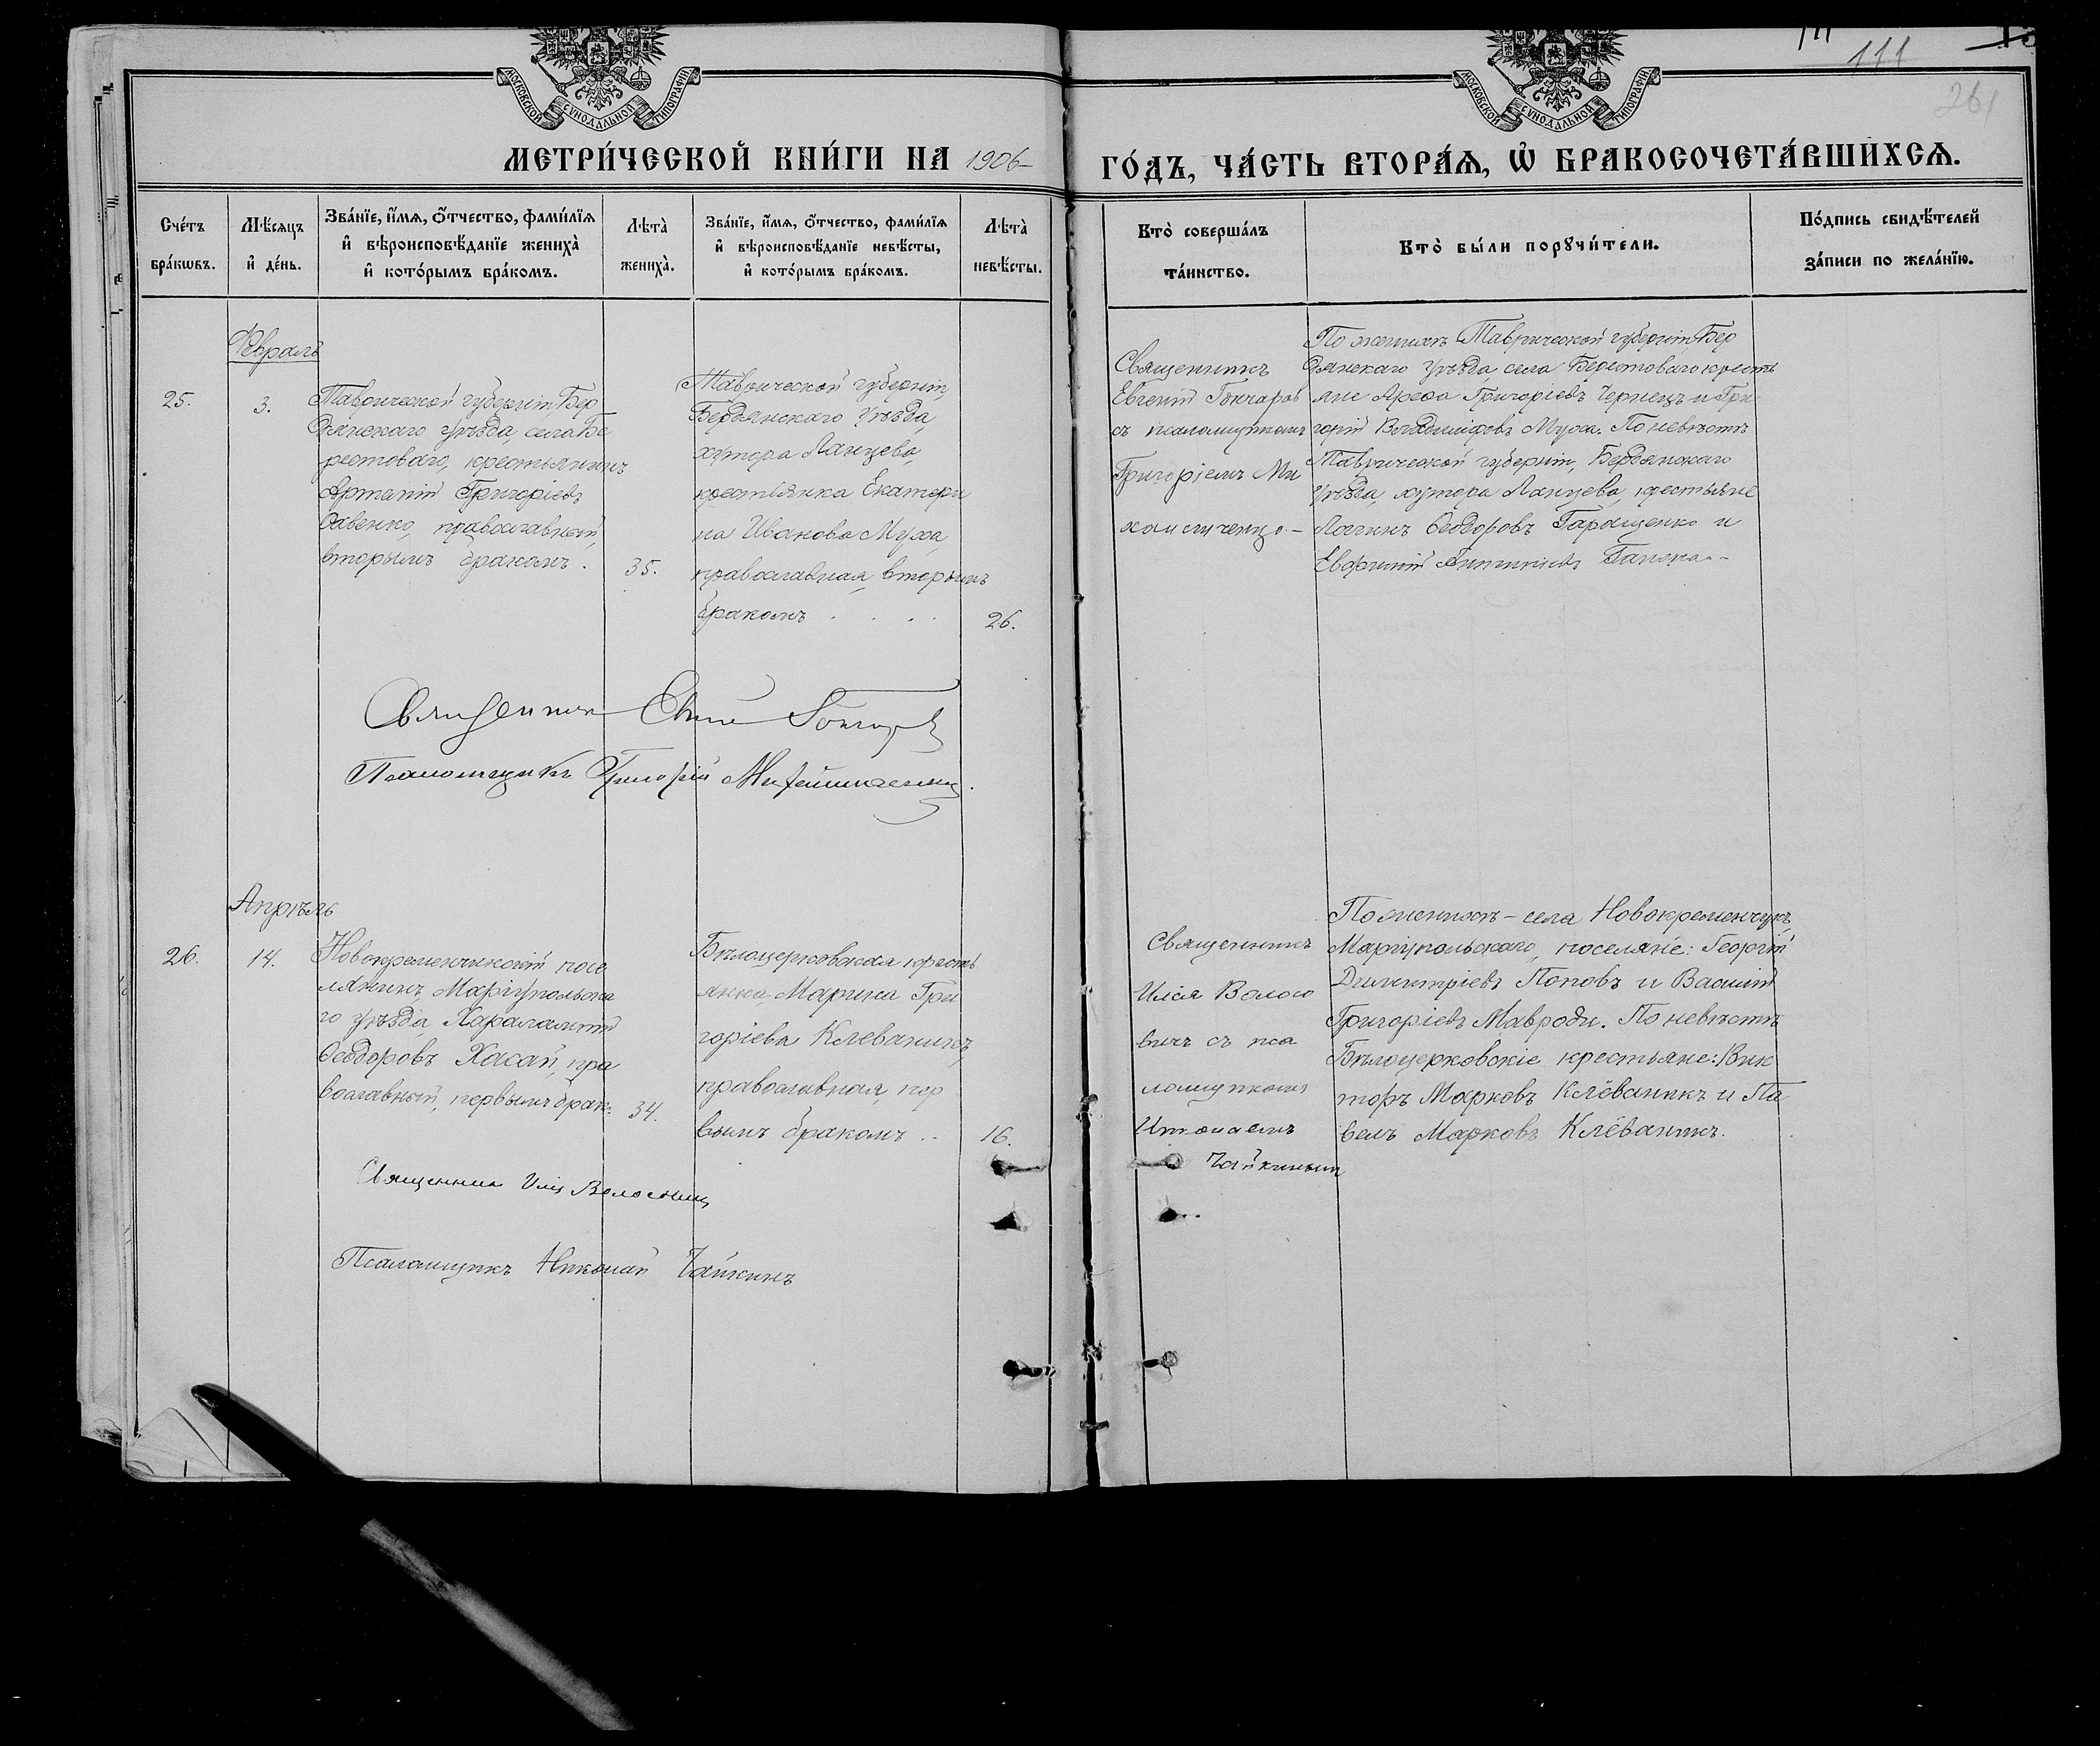 МОСКОВСКОЙ СѴНОДАЛЬНОЙ ТИПОГРАФІИ
МОСКОВСКОЙ СѴНОДАЛЬНОЙ ТИПОГРАФІИ
111
261
МЕТРИ́ЧЕСКОЙ КНИ́ГИ НА 1906
ГО́ДЪ, ЧА́СТЬ ВТОРА́Ѧ, Ѡ БРАКОСОЧЕТА́ВШИХСѦ.
Сче́тъ
бра́кѡвъ.
Мѣ́сяцъ
и҆ де́нь.
Зва́нїе, и҆́мѧ, ѻ҆́тчество, фами́лїѧ
и҆ вѣроисповѣ́данїе жениха̀
и҆ кото́рымъ бра́комъ.
Лѣта̀
жениха̀.
Зва́нїе, и҆́мѧ, ѻ҆́тчество, фами́лїѧ
и҆ вѣроисповѣ́данїе невѣ́сты,
и҆ кото́рымъ бра́комъ.
Лѣта̀
невѣ́сты.
Кто̀ соверша́лъ
та́инство.
Кто̀ бы́ли порꙋчи́тели.
По́дпись свидѣ́телей
за́писи по жела́нїю.
Февраль
25.
3.
Таврической губерніи, Бер
дянскаго уѣзда, села Бе
рестоваго, крестьянинъ
Григоріевъ
Савенко, православный,
вторымъ бракомъ.
35.
Таврической губерніи,
Бердянскаго уѣзда,
хутора Ланцева,
крестьянка Екатери
на Иванова Муха,
православная, вторымъ
бракомъ . . . .
26.
Священникъ
Евгеній Гончаровъ
съ псаломщикомъ
Григоріемъ Ми
По женихѣ Таврической губерніи, Бер
дянскаго уѣзда, села Берестоваго кресть
яне Григоріевъ Чернецъ и Гри
горій Муха. По невѣстѣ
Таврической губерніи, Бердянскаго
уѣзда, хутора Ланцева, крестьяне
Логинъ Ѳеодоровъ Геращенко и
Священникъ Гончаровъ
Псаломщикъ Григорій
Апрѣль
26.
14.
Новокременчикскій посе
лянинъ, Маріупольска
го уѣзда, Харалампій
Ѳеодоровъ Хасай, пра
вославный, первымъ брак.
34.
Бѣлоцерковская кресть
янка, Марина Гри
горіева Клеваникъ,
православная, пер
вымъ бракомъ ..
16.
Священникъ
Илія Волосо
вичъ съ пса
ломщикомъ
Николаемъ
Чайкинымъ
По женихѣ – села Новокременчикъ,
Маріупольскаго, поселяне: Георгій
Димитріевъ Поповъ и Василій
Григоріевъ Мавроди. По невѣстѣ
Бѣлоцерковскіе крестьяне: Вик
торъ Марковъ Клёваникъ и Па
велъ Марковъ Клёваникъ.
Священникъ Илія Волосовичъ
Псаломщикъ Николай Чайкинъ